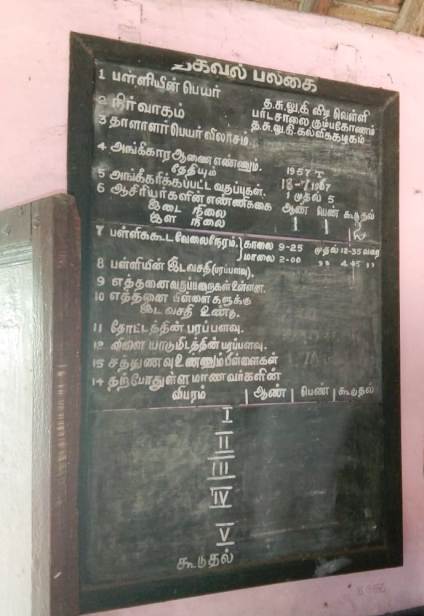 தகவல் பலகை
1 பள்ளியின் பெயர்
த.சு.லு.கி வீடி வெள்ளி
2 நிர்வாகம் பாடசாலை கும்பகோணம்
3 தாளாளர் பெயர் விலாசம்.
4 அங்கீகார ஆணை எண்ணும். 1957
தேதியும் 18-7-1967
5 அங்கீகரிக்கப்பட்ட வகுப்புகள். 1 முதல் 5
6 ஆசிரியர்களின் எண்ணிக்கை ஆண் பெண் கூடுதல்
இடை நிலை 1 1
இள நிலை
7 பள்ளிக்கூட வேலைநேரம். } காலை 9-25 முதல் 12-35 வரை
மாலை 2-00 " 4.45 "
8 பள்ளியின் இடவசதி (பரப்பளவு).
9 எத்தனை வகுப்பறைகள் உள்ளன.
10 எத்தனை பிள்ளைகளுக்கு
இட வசதி உண்டு.
11 தோட்டத்தின் பரப்பளவு.
12 விளையாடுமிடத்தின் பரப்பளவு.
13 சத்துணவு உண்ணும் பிள்ளைகள்
14 தற்போதுள்ள மாணவர்களின்
விபரம் | ஆண் | பெண் | கூடுதல்
I
II
III
IV
V
கூடுதல்